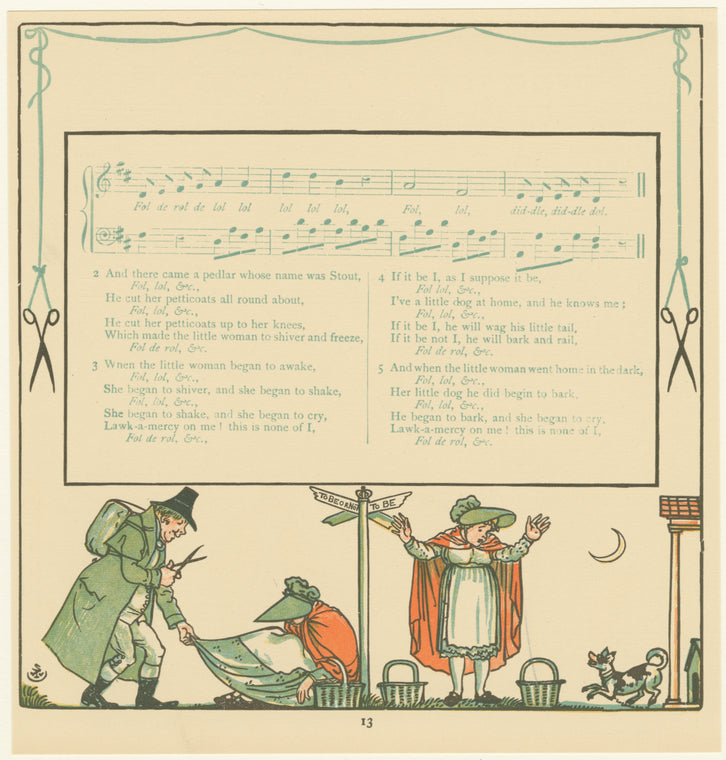 Fol de rol de lol lol lol lol lol, Fol, lol, did-dle, did-dle dol.
2 And there came a pedlar whose name was Stout,
Fol, lol, &c.,
He cut her petticoats all round about,
Fol, lol, &c.,
He cut her petticoats up to her knees,
Which made the little woman to shiver and freeze,
Fol de rol, &c.
3 When the little woman began to awake,
Fol, lol, &c.,
She began to shiver, and she began to shake,
Fol, lol, &c.,
She began to shake, and she began to cry,
Lawk-a-mercy on me! this is none of I,
Fol de rol, &c.,
4 If it be I, as I suppose it be,
Fol lol, &c.,
I've a little dog at home, and he knows me;
Fol, lol, &c.,
If it be I, he will wag his little tail,
If it be not I, he will bark and rail,
Fol de rol, &c.
5 And when the little woman went home in the dark,
Fol, lol, &c.,
Her little dog he did begin to bark,
Fol, lol, &c.,
He began to bark, and she began to cry,
Lawk-a-mercy on me! this is none of I,
Fol de rol, &c.
TO BE OR NOT TO BE
13